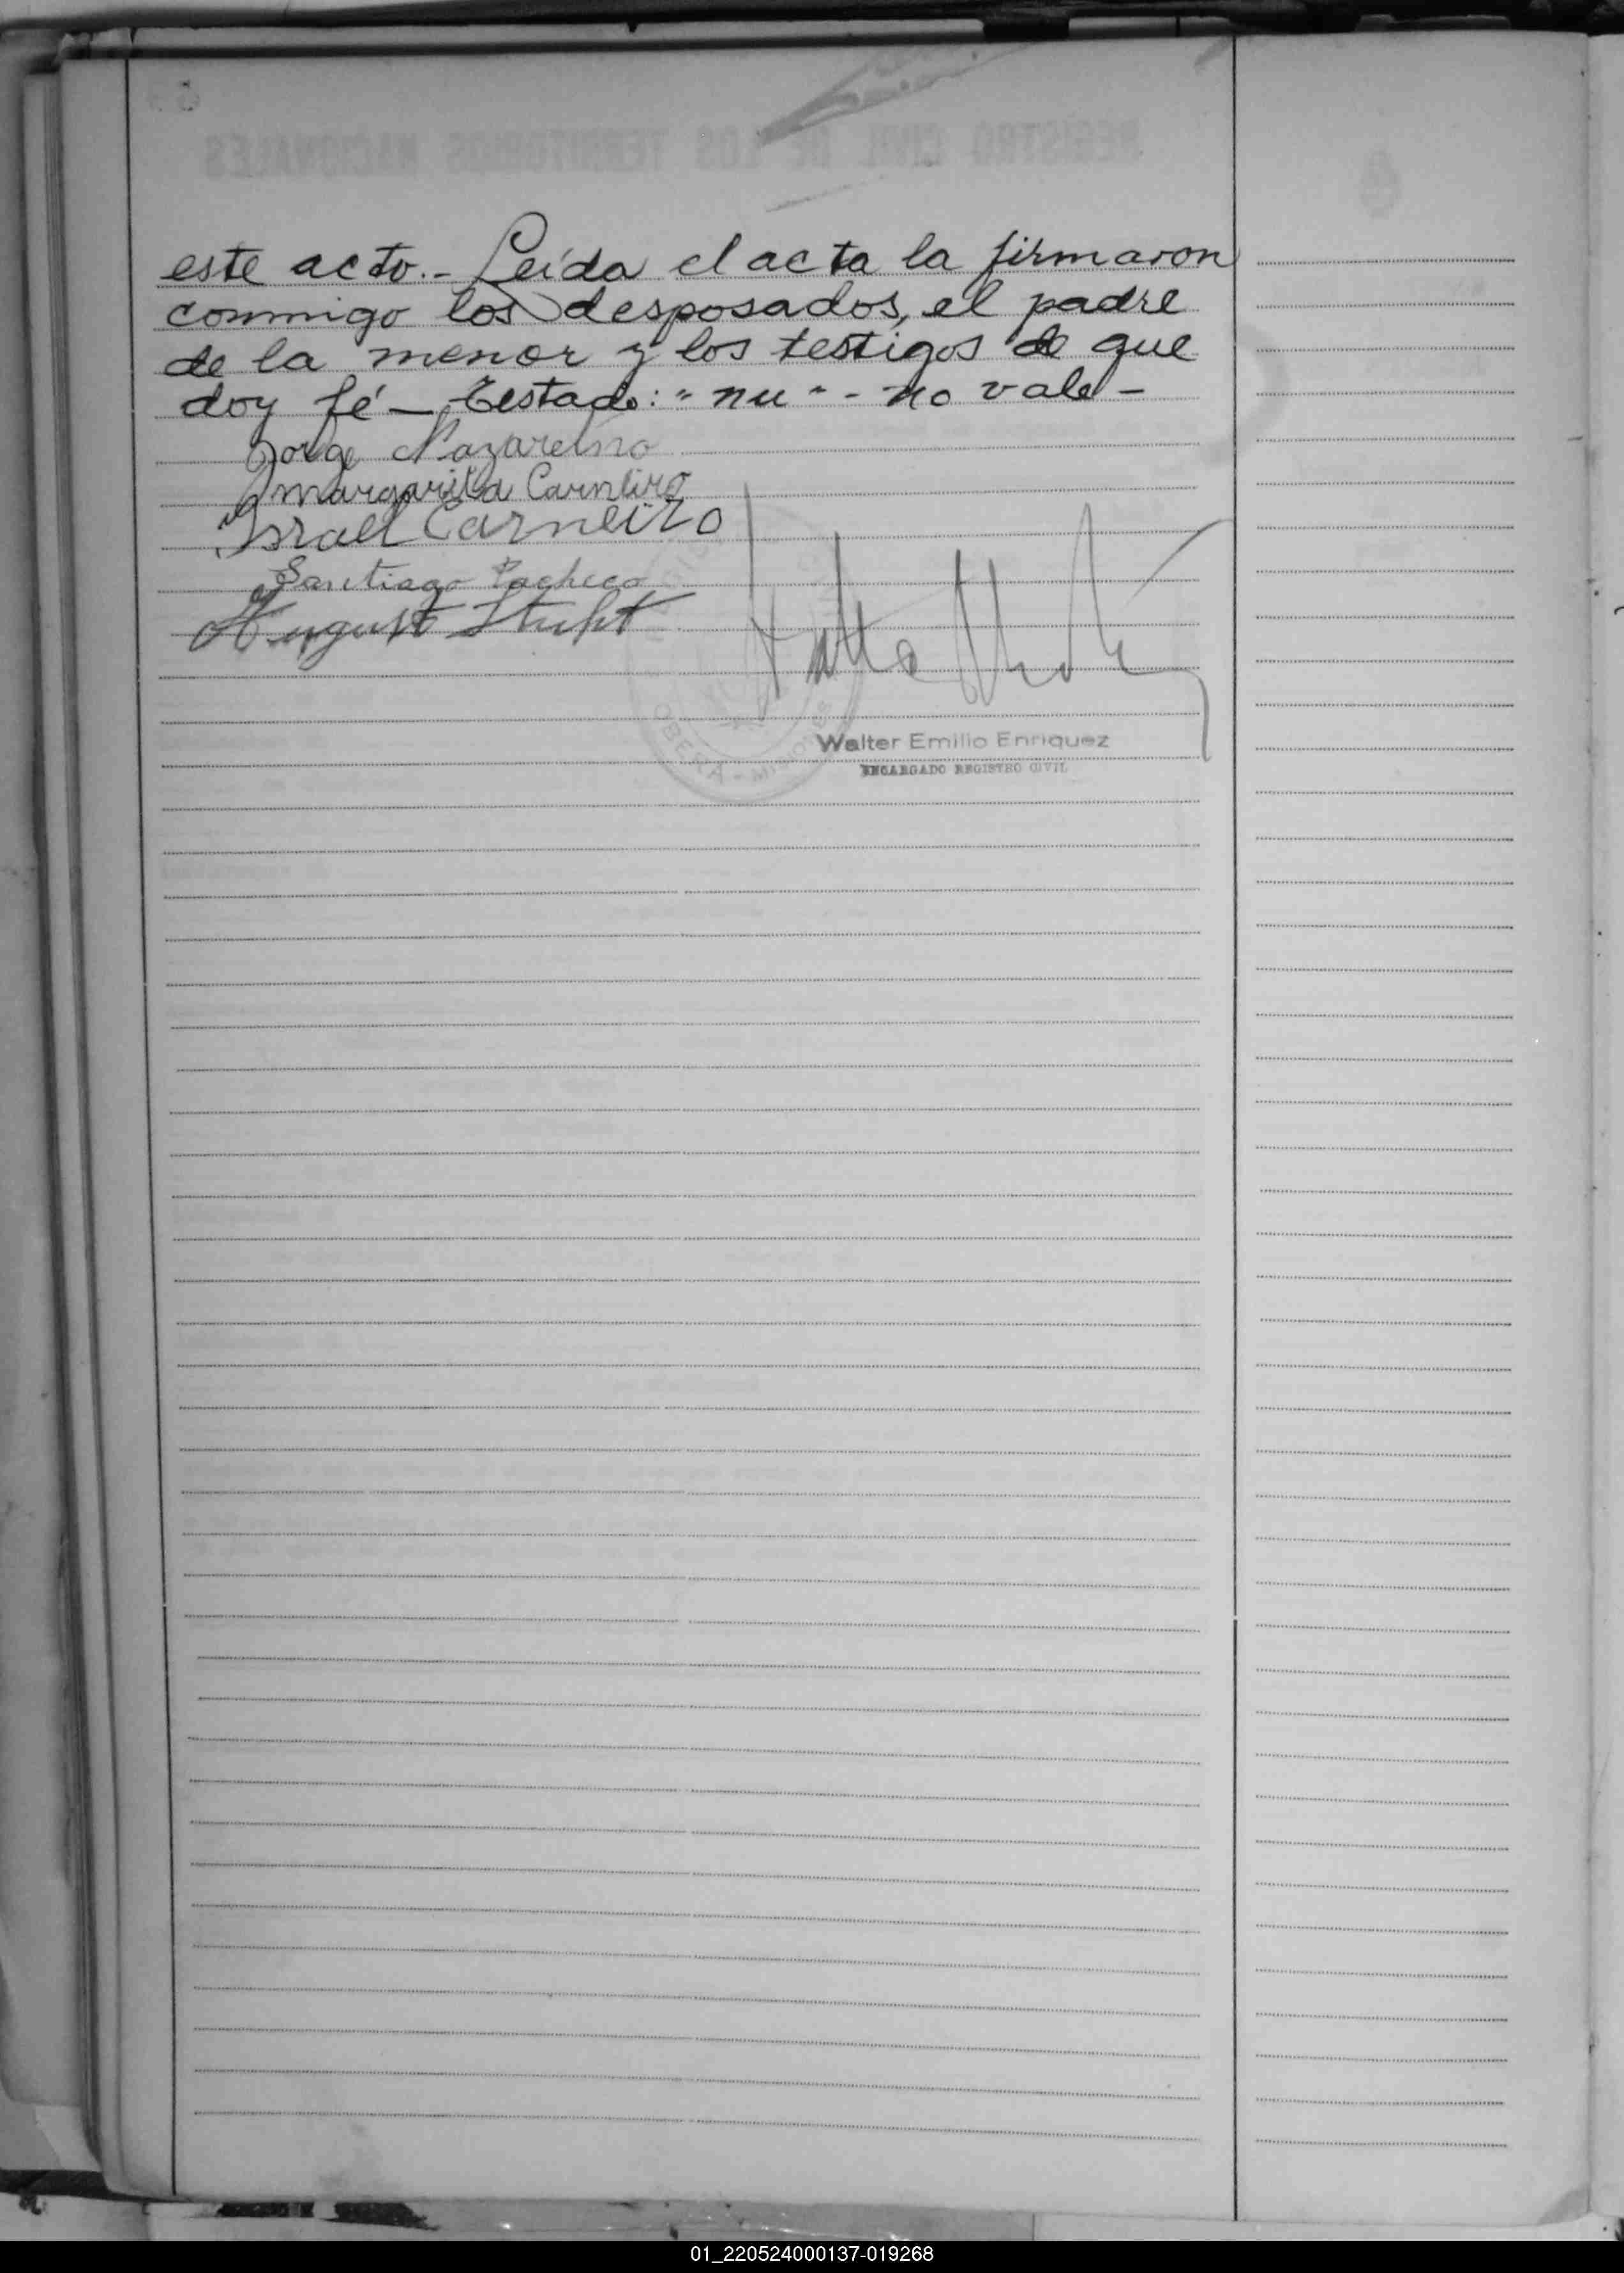 este acto.- Leída el acta la firmaron
conmigo los desposados, el padre
de la menor y los testigos de que
doy fé — Testado: "nu" - no vale -
Jorge Nazareino
Margarita Carneiro
Israel Carneiro
Santiago Pacheco
August
Walter Emilio Enriquez
ENCARGADO REGISTRO CIVIL
OBERA - MISIONES
01_220524000137-019268